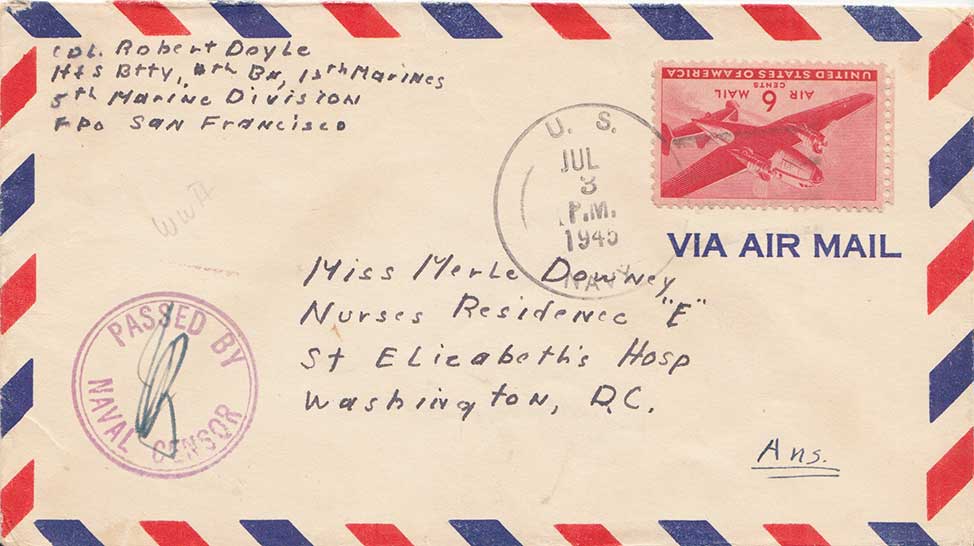 Cpl. Robert Doyle
H&S Btty, 4th Bn, 13th Marines
5th Marine Division
FPO San Francisco
AIR 6 MAIL
CENTS
UNITED STATES OF AMERICA
U. S.
JUL
3
P.M.
1945
NAVY
VIA AIR MAIL
WWII
Miss Merle Downey
Nurses Residence "E"
St Elizabeth's Hosp
Washington, D.C.
PASSED BY
NAVAL CENSOR
Ans.